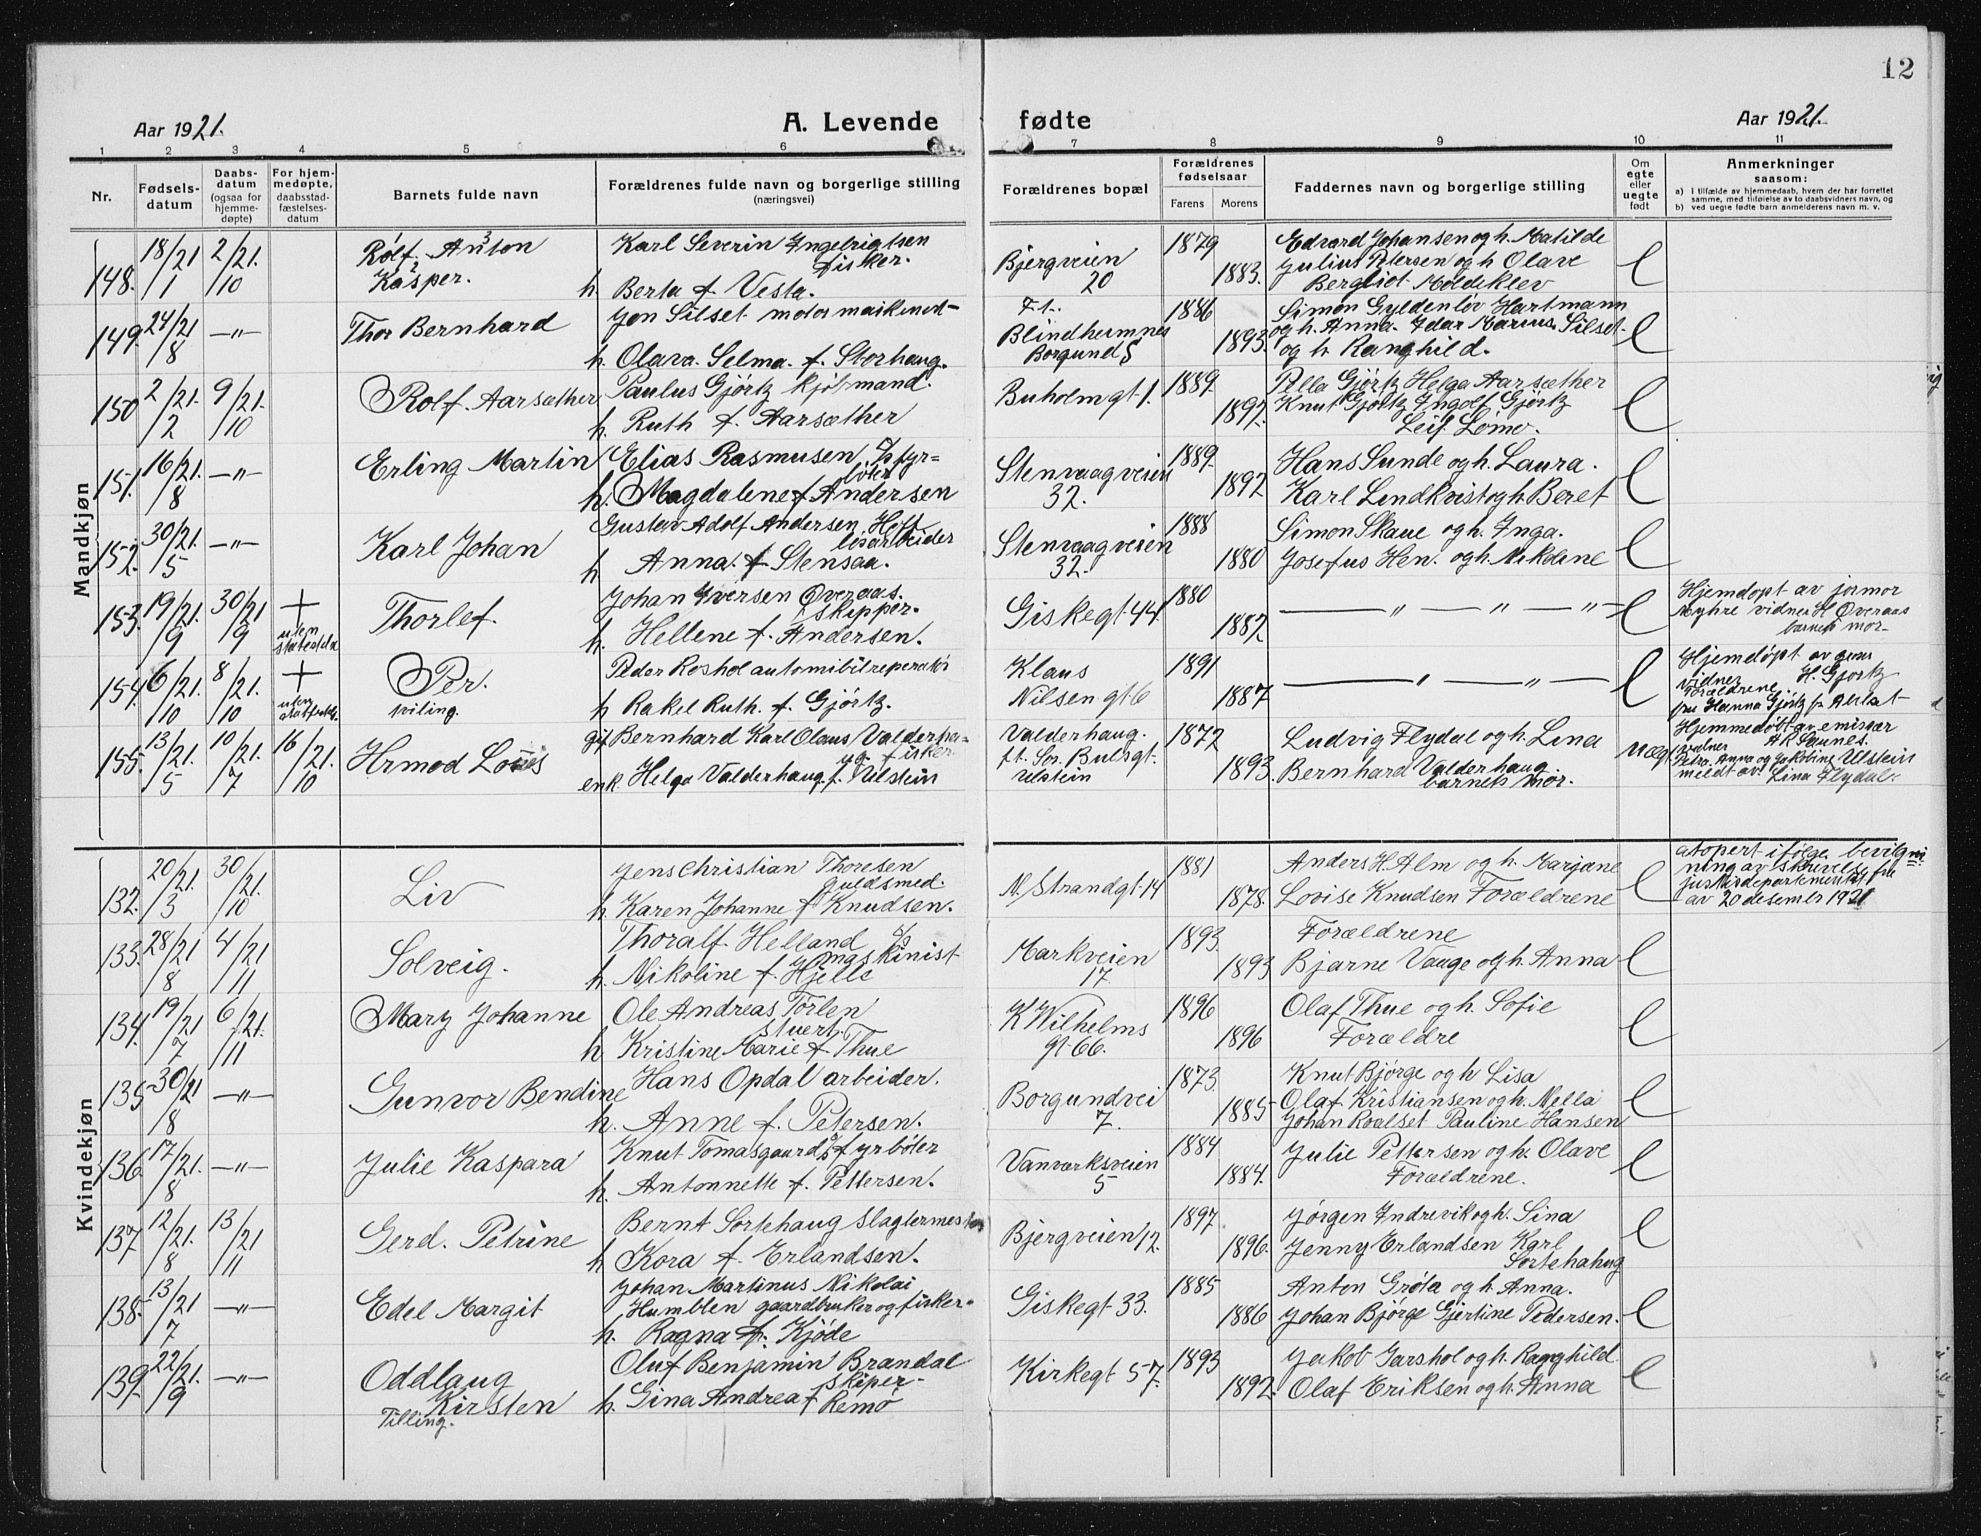 12
Aar 1921.
A. Levende fødte
Aar 1921.
1 2 3 4 5 6 7 8 9 10 11
Nr.
Fødsels-
datum
Daabs-
datum
(ogsaa for
hjemme-
døpte)
For hjem-
medøpte,
daabsstad-
fæstelses-
datum
Barnets fulde navn
Forældrenes fulde navn og borgerlige stilling
(næringsvei)
Forældrenes bopæl
Forældrenes
fødselsaar
Farens Morens
Faddernes navn og borgerlige stilling
Om
egte
eller
uegte
født
Anmerkninger
saasom:
a) i tilfælde av hjemmedaab, hvem der har forrettet
samme, med tilføielse av to daabsvidners navn, og
b) ved uegte fødte barn anmelderens navn m. v.
Mandkjøn
148. 18/21 /1 2/21. /10
Rolf Anton
Kasper.
Karl Severin Ingebrigtsen
fisker.
h. Berta f. Vesta.
Bjergveien
20
1879
1883.
Edvard Johansen og h. Matilde
Julius Petersen og h Olave
Bergliot Moldeklev
e
149. 24/21 /8 -"-
Thor Bernhard
Jon Silset motor maskinist
h. Olava Selma. f. Storhaug.
Ft.
Blindheimnes
Borgund S
1886
1893.
Simon Gyldenløv Hartmann
og h. Anna. Idar Marius Silset
og h Ranghild.
e
150 2/21. /2 9/21. /10
Rolf Aarsæther
Paulus Gjørtz kjøbmand.
h. Ruth f. Aarsæther
Buholmgt 1.
1889.
1897.
Pella Gjørtz Helga Aarsæther
Knut Gjørtz Ingolf Gjørtz
Leif Lomo.
e
151. 16/21. /8 -"-
Erling Martin
Elias Rasmusen fyr=
bøter
h. Magdalene f. Andersen
Stenvaagveien
32.
1889.
1892
Hans Sunde og h. Laura.
Karl Lindkvist og h Beret
e
152. 30/21. /5 -"-
Karl Johan
Gustav Adolf Andersen
arbeider
h Anna. f. Stensaa.
Stenvaagveien
32.
1888
1880
Simon Skaue og h. Inga.
Josefus Hen. og h. Nikoline
e
153. 19/21. /9 30/21 /9 +
uten
Thorlef.
Johan Iversen Overaas.
skipper.
h. Hellene f. Andersen.
Giskegt 44.
1880
1887.
— " — " — " —
e
Hjemdøpt av jormor
Myhre vidner H Overaas
barnets mor
154. 6/21. /10 8/21. /10 +
uten
Per.
tviling.
Peder Roshol automibilreperatør
h Rakel Ruth. f. Gjørtz.
Klaus
Nilsengt 6
1891
1887
— " — " —
e
Hjemdøpt av
vidner H. Gjørtz
Forældrene
fru Hanna Gjørtz
155. 13/21. /5 10/21. /7 16/21. /10
Hrmod Loués
gif Bernhard Karl Olaus Valderha=
ug fisker
enk. Helga Valderhaug f. Ulstein
Valderhaug.
ft. Sor. Bullsgt.
Ulstein
1872
1893.
Ludvig Flydal og h. Lina
Bernhard Valderhaug
barnets mor.
uegt
Hjemmedøbt av emisær
vidner A K Saunes.
Petro. Anna og Jakobine Ulstein
meldt av. Lina Flydal.
Kvindekjøn
132. 20/21. /3 30/21. /10
Liv
Jens Christian Thoresen
guldsmed.
h Karen Johanne f Knudsen.
N. Strandgt 14
1881
1878.
Anders H. Alm og h. Marjane
Lovise Knudsen Forældrene
e
adopert ifølge bevilgni
ning av skrivelse fra
justisdepartementet
av 20 desember 1921
133. 28/21 /8 4/21 /11
Solveig.
Thoralf Helland
maskinist
h. Nikoline f. Hjelle
Markveien
17.
1893.
1893
Forældrene
Bjarne Vauge og h. Anna
e
134. 19/21 /7 6/21. /11
Mary Johanne
Ole Andreas Torlen
stuert.
h Kristine Marie f Thue
K Wilhelms
gt 66.
1896
1896
Olaf Thue og h. Sofie
Forældre
e
135 30/21 /8 -"-
Gunvor Bendine
Hans Opdal arbeider.
h. Anne f. Petersen.
Borgundvei
7.
1873
1885
Knut Bjørge og h Lisa
Olaf Kristiansen og h. Mella
Johan Roalset Pauline Hansen
e
136 17/21. /8 -"-
Julie Kaspara
Knut Tomasgaard fyrbøter
h. Antonnette f. Pettersen.
Vanværksveien
5
1884
1884.
Julie Pettersen og h. Olave
Forældrene.
e
137 12/21 /8 13/21 /11
Gerd. Petrine
Bernt Sortehaug slagtermester
h Kora f. Erlandsen.
Bjergveien 12.
1897
1896.
Jørgen Indrevik og h. Sina
Jenny Erlandsen Karl
Sortehahug
e
138. 13/21 /7 -"-
Edel Margit
Johan Martinus Nikolai
Humblen gaardbruker og fisker
h. Ragna f. Kjøde
Giskegt 33.
1885
1886
Anton Grøta og h. Anna.
Johan Bjørge Gjertine Pedersen.
e
139. 22/21. /9 -"-
Oddlaug
Kirsten
Tilling.
Oluf Benjamin Brandal
skiper.
h. Gina Andrea f Remø
Kirkegt 57.
1893
1892.
Jakob Garshol og h. Ranghild
Olaf Eriksen og h. Anna
e